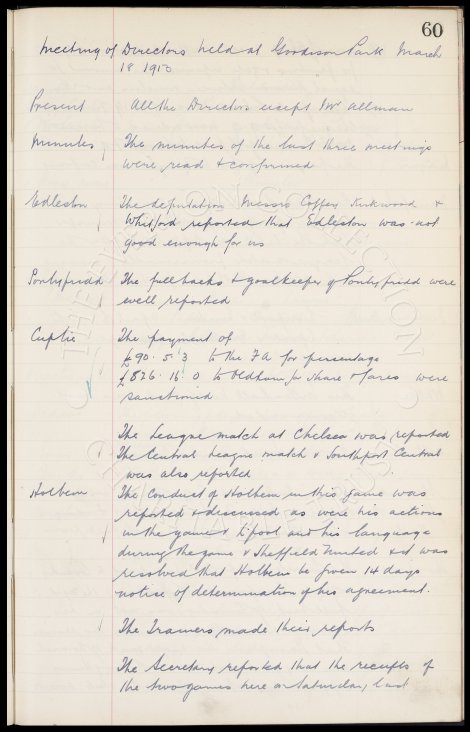 60
Meeting of Directors held at Goodison Park March
18 1913
Present All the Directors except Mr Allman
Minutes The minutes of the last three meetings
were read & confirmed
Edleston The deputation Messrs Coffey Kirkwood &
Whitford reported that Edleston was not
good enough for us
Pontypridd The full backs & goalkeeper of Pontypridd were
well reported
Cuptie The payment of
£90. 5. 3 to the FA for percentage
£826. 16. 0 to Oldham for share & fares were
sanctioned
The League match at Chelsea was reported
The Central League match v Southport Central
was also reported
Holbem The conduct of Holbem in this game was
reported & discussed as were his actions
in the game v L'pool and his language
during the game v Sheffield United & it was
resolved that Holbem be given 14 days
notice of determination of his agreement.
The Trainers made their reports
The Secretary reported that the receipts of
the two games here on Saturday last
THE EVERTON COLLECTION